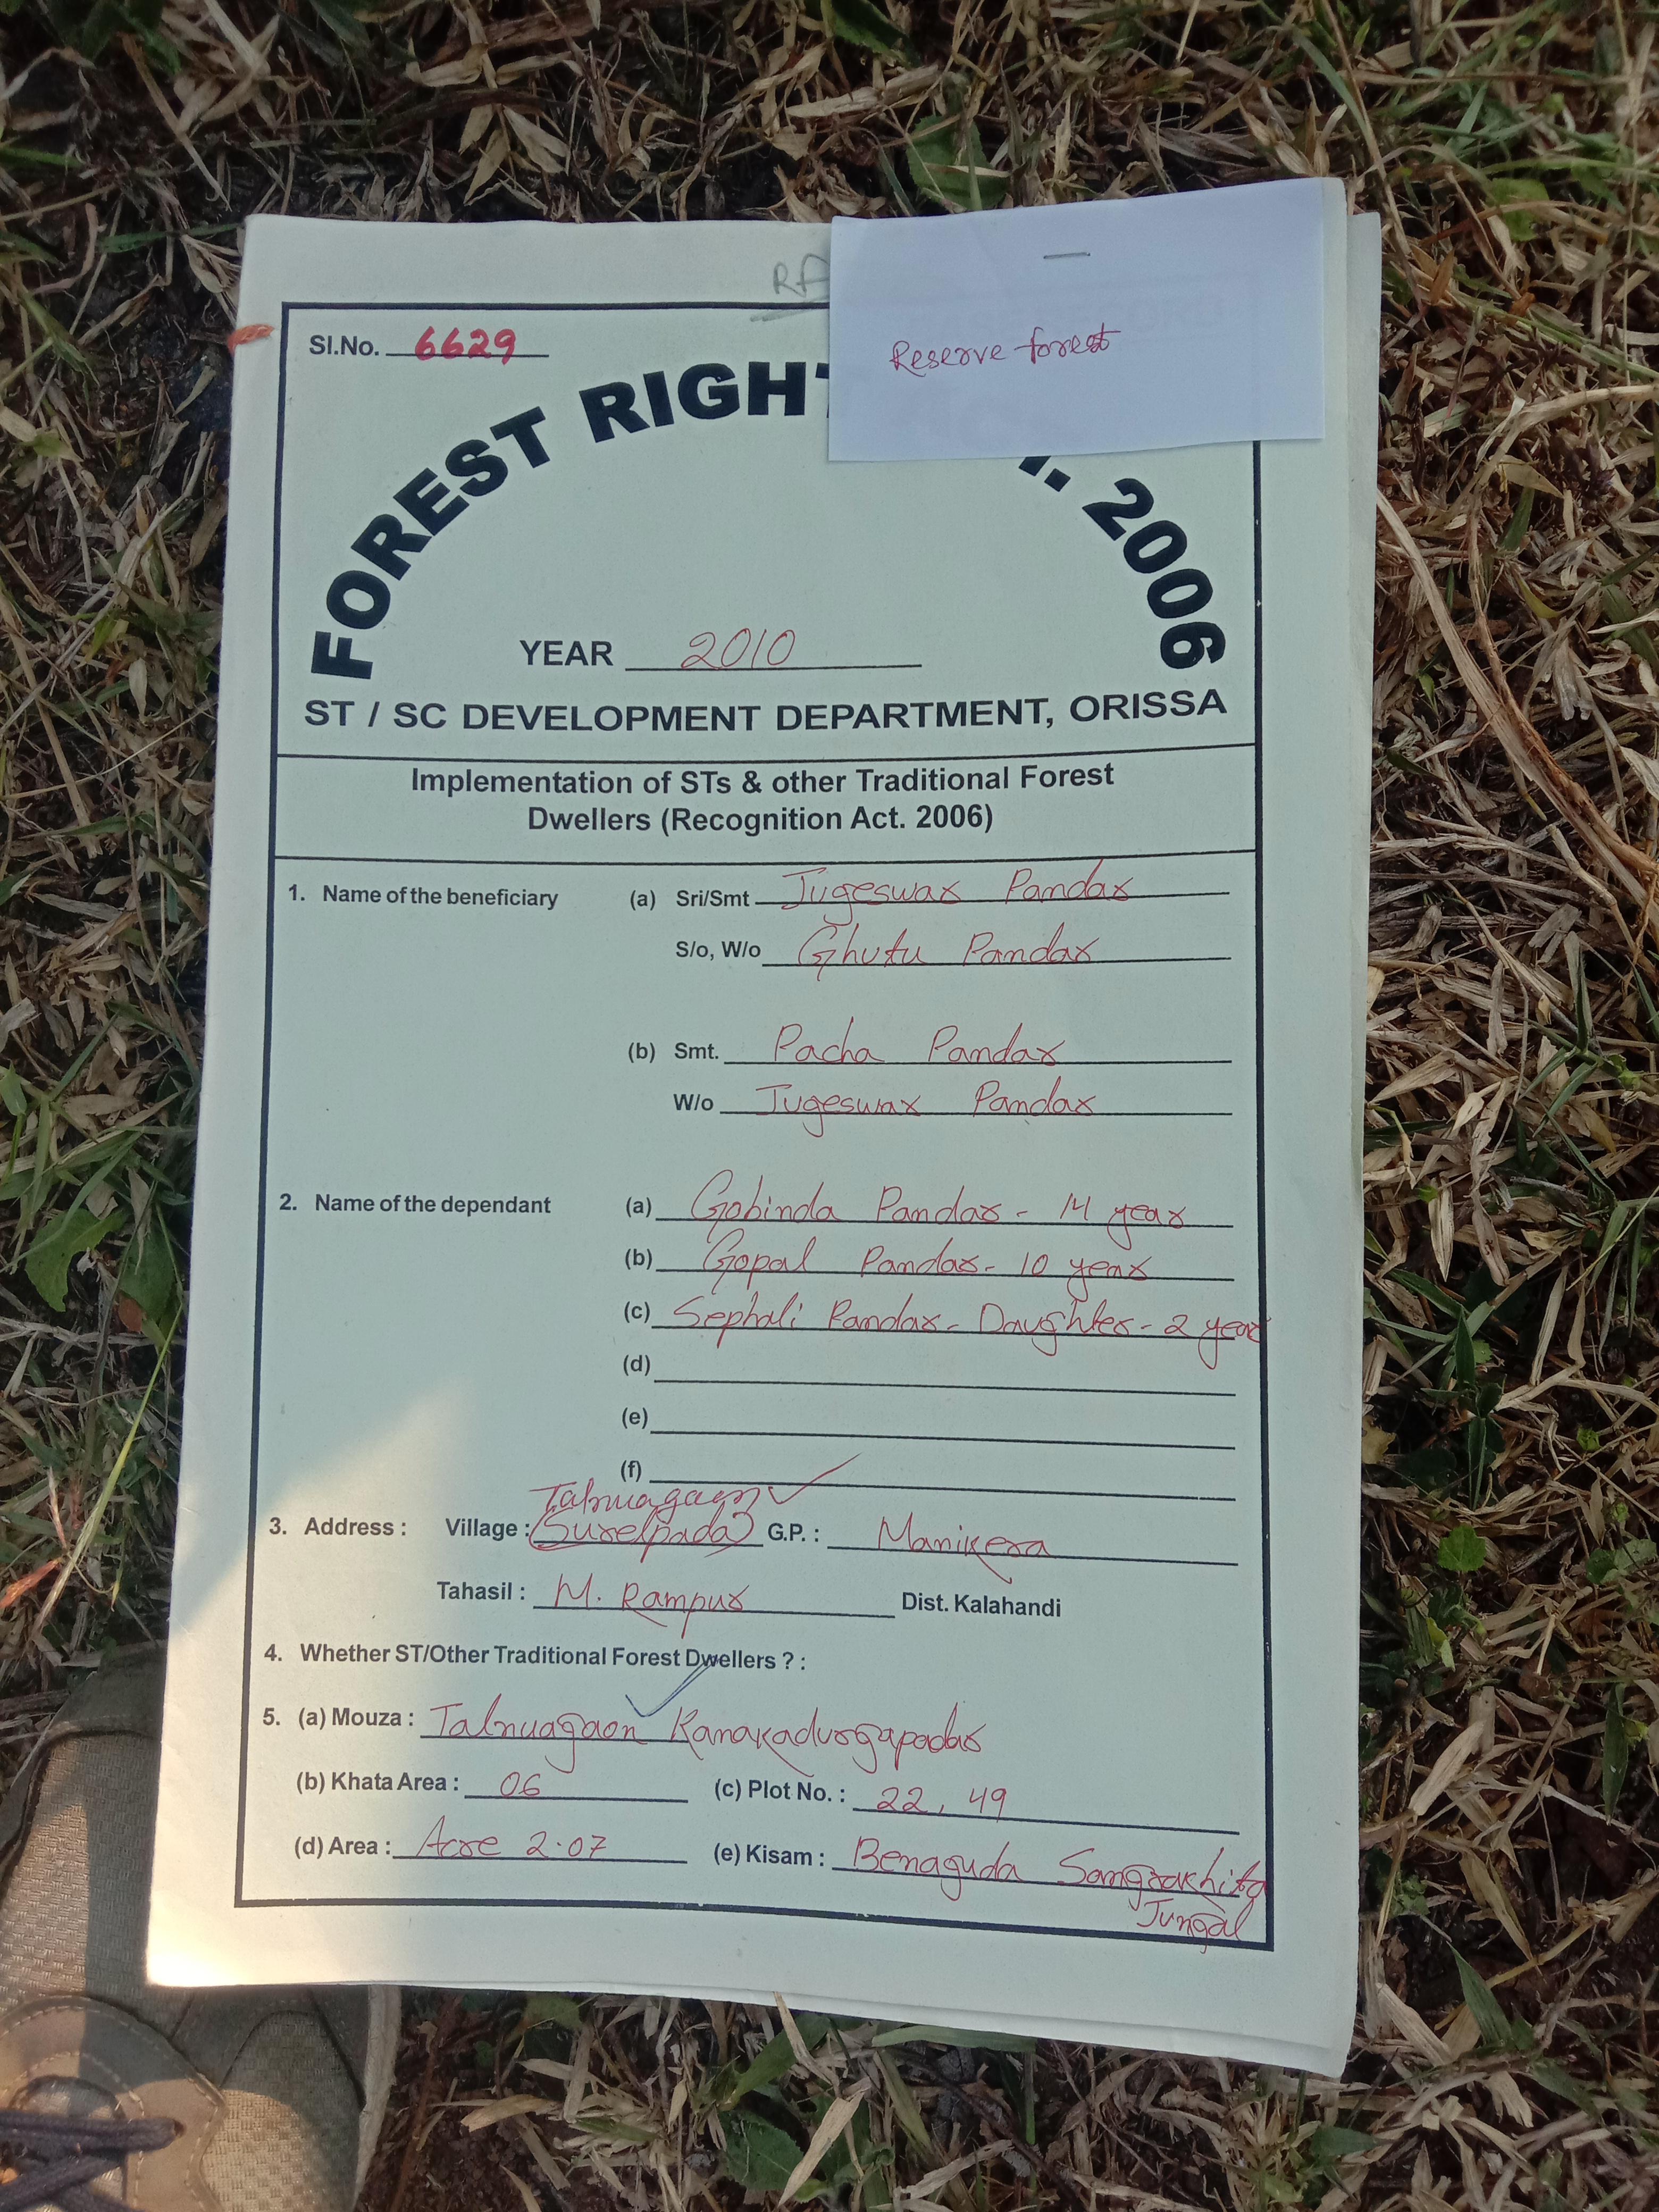 RA
Reserve forest
Sl.No. 6629
FOREST RIGHT . 2006
YEAR 2010
ST / SC DEVELOPMENT DEPARTMENT, ORISSA
Implementation of STs & other Traditional Forest
Dwellers (Recognition Act. 2006)
1. Name of the beneficiary (a) Sri/Smt Jugeswar Pandar
S/o, W/o Ghutu Pandar
(b) Smt. Pacha Pandar
W/o Jugeswar Pandar
2. Name of the dependant (a) Gobinda Pandar - 14 year
(b) Gopal Pandar - 10 year
(c) Sephali Pandar - Daughter - 2 year
(d)
(e)
(f)
Talnuagaon
3. Address : Village : (Surelpada) G.P. : Manikera
Tahasil : M. Rampur Dist. Kalahandi
4. Whether ST/Other Traditional Forest Dwellers ? :
5. (a) Mouza : Talnuagaon Kanakadurgapadar
(b) Khata Area : 06 (c) Plot No. : 22, 49
(d) Area : Acre 2.07 (e) Kisam : Benaguda Samgrakhita
Jungal